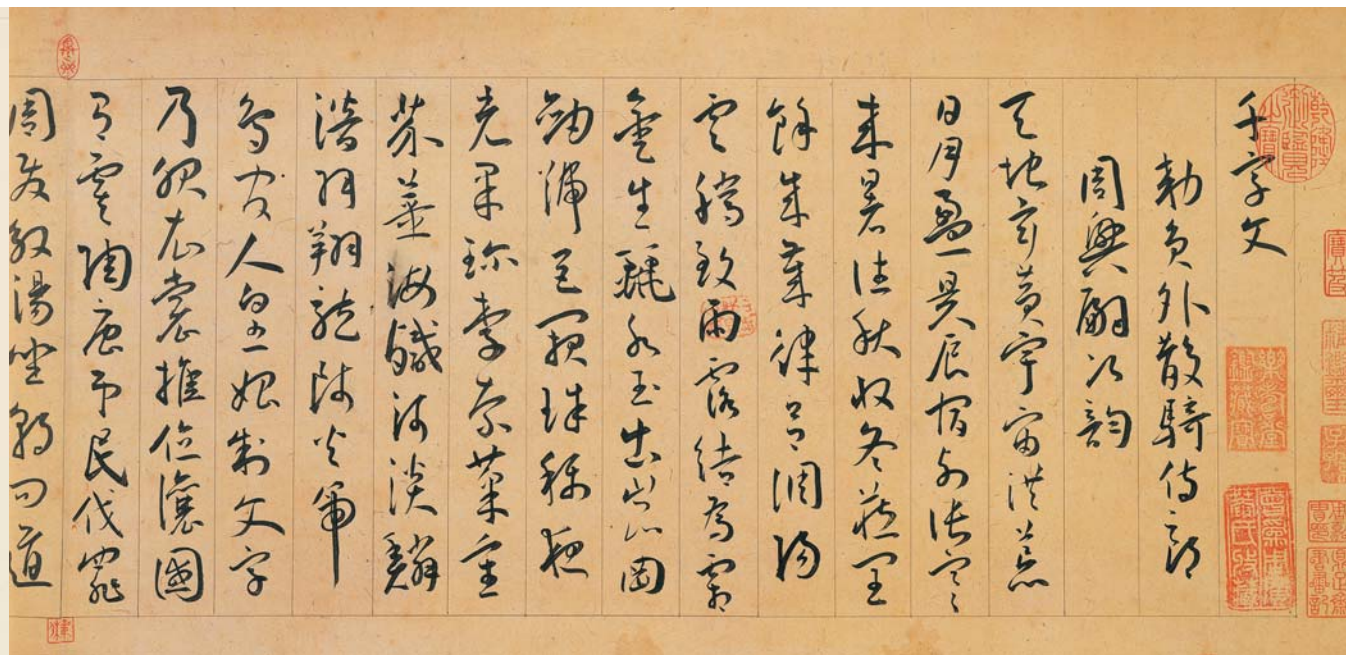 千字文
勅員外散騎侍郎
周興嗣次韵
天地玄黃宇宙洪荒
日月盈昃辰宿列張寒
來暑往秋收冬藏閏
餘成歲律呂調陽
雲騰致雨露結為霜
金生麗水玉出崑岡
劍號巨闕珠稱夜
光果珍李柰菜重
芥薑海鹹河淡鱗
潛羽翔龍師火帝
鳥官人皇始制文字
乃服衣裳推位讓國
有虞陶唐弔民伐罪
周發殷湯坐朝問道
乾隆御覽之寶